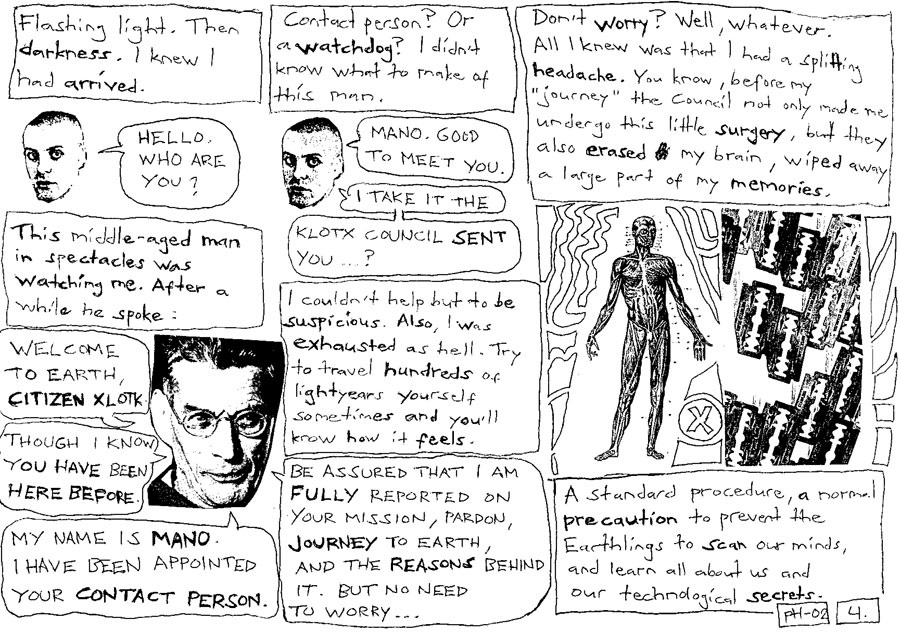 Flashing light. Then
darkness. I knew I
had arrived.
HELLO.
WHO ARE
YOU?
This middle-aged man
in spectacles was
watching me. After a
while he spoke:
WELCOME
TO EARTH,
CITIZEN XLOTK.
THOUGH I KNOW
YOU HAVE BEEN
HERE BEFORE.
MY NAME IS MANO.
I HAVE BEEN APPOINTED
YOUR CONTACT PERSON.
Contact person? Or
a watchdog? I didn't
know what to make of
this man.
MANO. GOOD
TO MEET YOU.
I TAKE IT THE
KLOTX COUNCIL SENT
YOU ...?
I couldn't help but to be
suspicious. Also, I was
exhausted as hell. Try
to travel hundreds of
lightyears yourself
sometimes and you'll
know how it feels.
BE ASSURED THAT I AM
FULLY REPORTED ON
YOUR MISSION, PARDON,
JOURNEY TO EARTH,
AND THE REASONS BEHIND
IT. BUT NO NEED
TO WORRY...
Don't worry? Well, whatever.
All I knew was that I had a splitting
headache. You know, before my
"journey" the Council not only made me
undergo this little surgery, but they
also erased my brain, wiped away
a large part of my memories.
X
A standard procedure, a normal
precaution to prevent the
Earthlings to scan our minds,
and learn all about us and
our technological secrets.
PH-02 4.